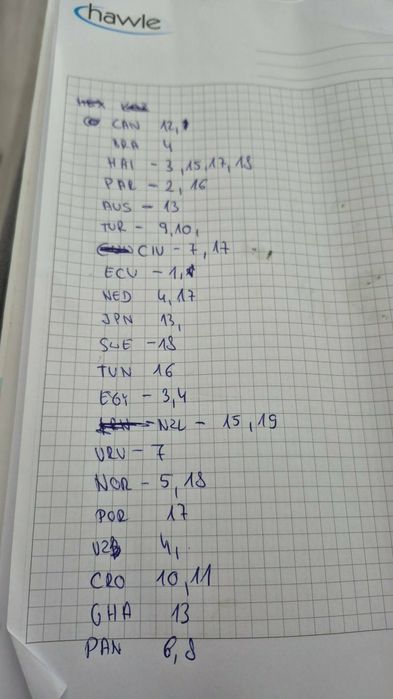 hawle
CAN 12,
BRA 4
HAI - 3, 15, 17, 18
PAR - 2, 16
AUS - 13
TUR - 9, 10,
CIV - 7, 17
ECU - 1,
NED 4, 17
JPN 13,
SWE - 18
TUN 16
EGY - 3, 4
NZL - 15, 19
URU - 7
NOR - 5, 18
POR 17
UZB 4,
CRO 10, 11
GHA 13
PAN 6, 8